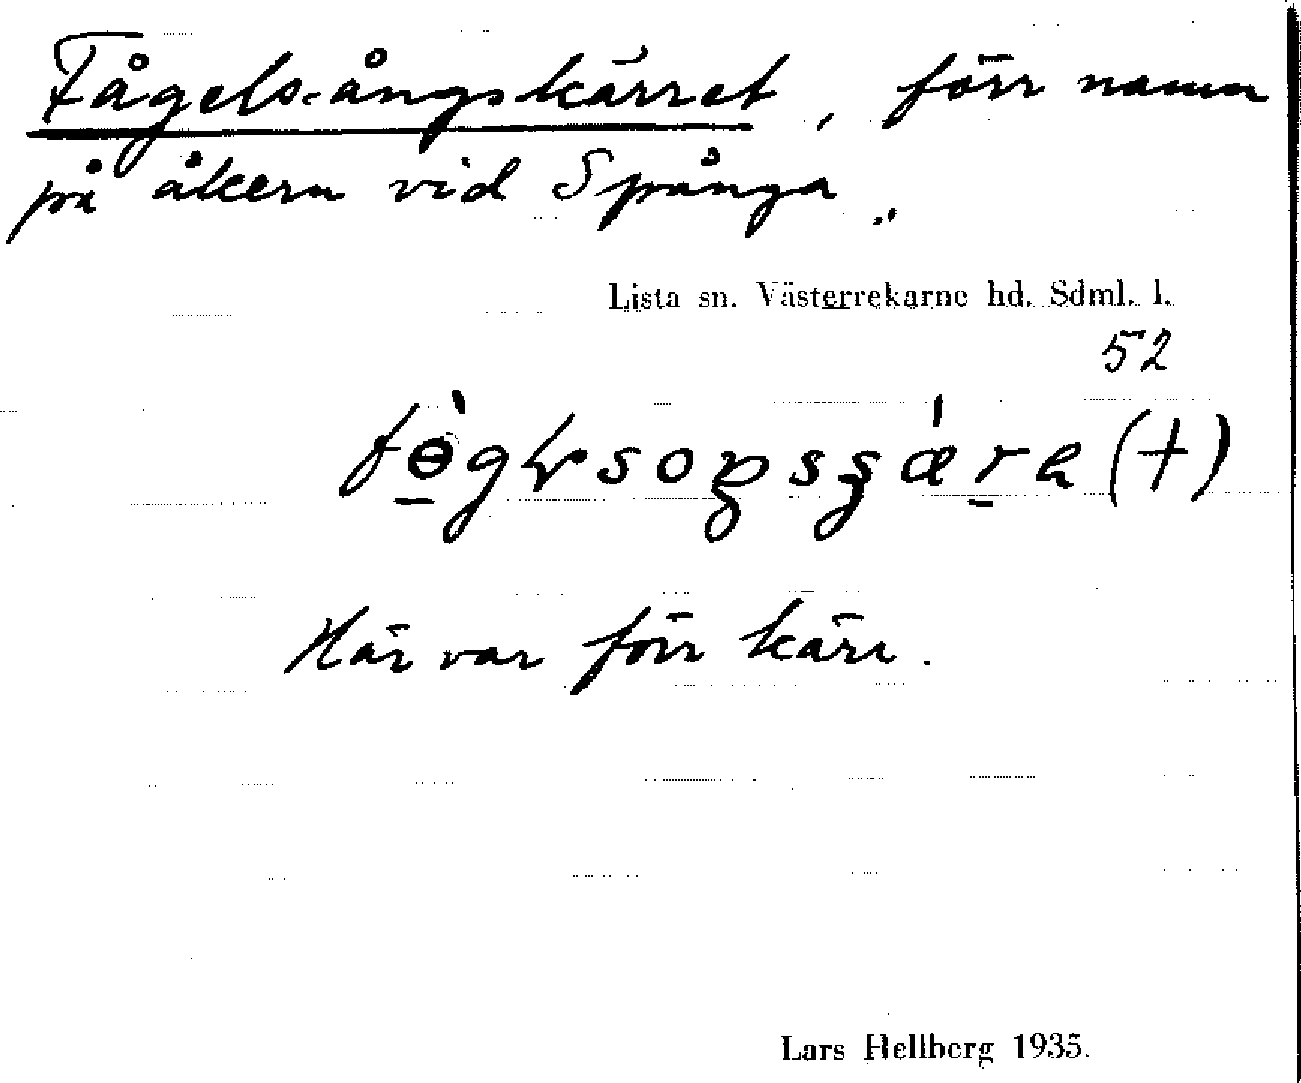 Fågelsångskärret, förr namn
på åkern vid Spånga.
Lista sn. Västerrekarne hd. Sdml. l.
52
Här var förr kärr.
Lars Hellberg 1935.